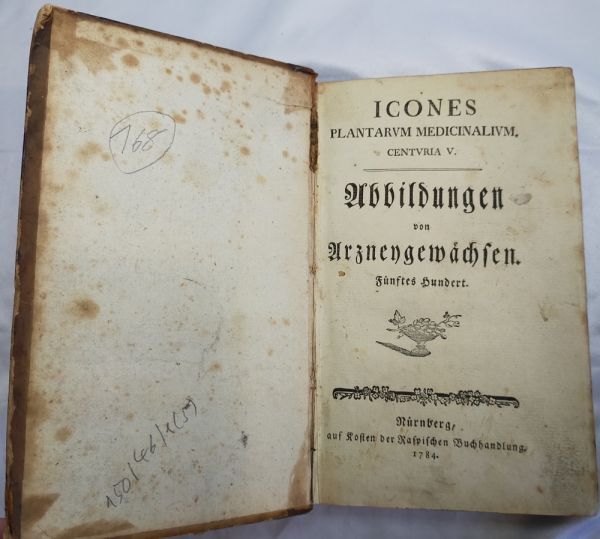 168
150/46/1(5)
ICONES
PLANTARVM MEDICINALIVM.
CENTVRIA V.
Abbildungen
von
Arzneygewächsen.
Fünftes Hundert.
Nürnberg,
auf Kosten der Raspischen Buchhandlung,
1784.